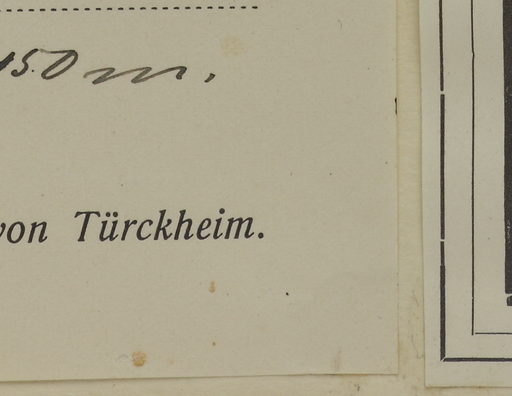 150 m.
von Türckheim.